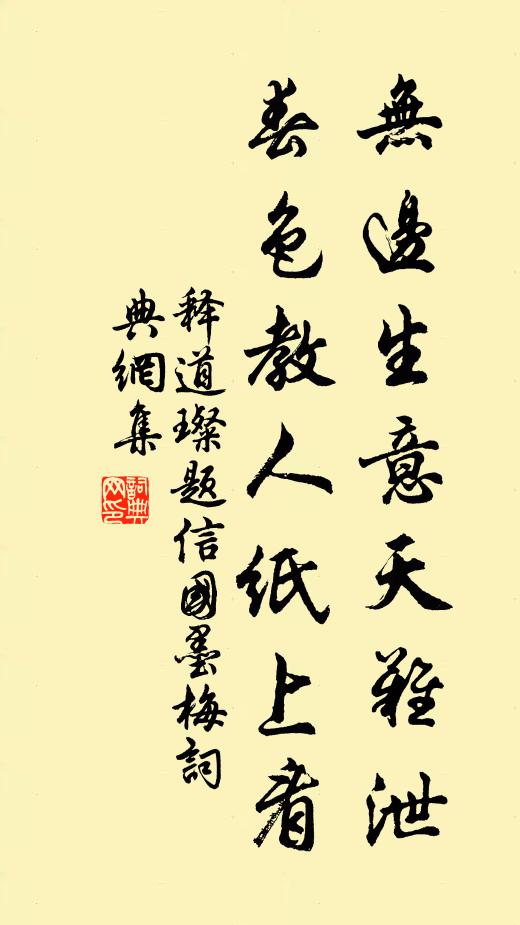 無邊生意天難泄
春色教人紙上看
释道璨题信國墨梅詞
典網集
詞典网印